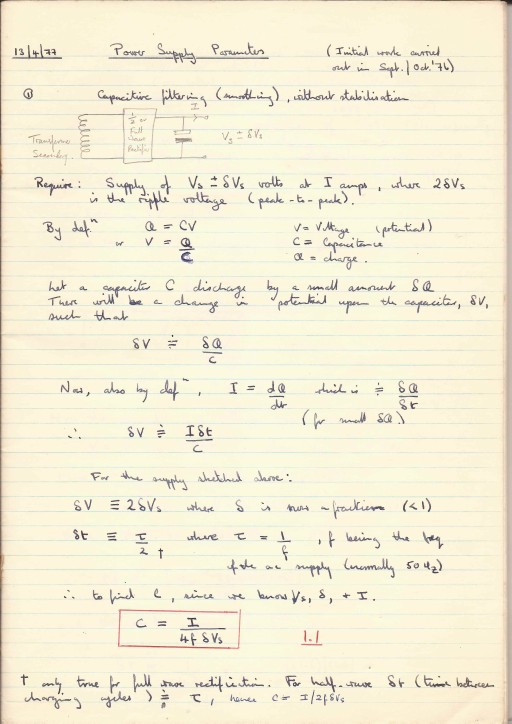 13/4/77 Power Supply Parameters (Initial work carried
out in Sept./Oct. '76)
① Capacitive filtering (smoothing), without stabilisation
I
½ or
Full
Wave
Rectifier
Transformer
Secondary.
Vs ± δVs
Require: Supply of Vs ± δVs volts at I amps, where 2δVs
is the ripple voltage (peak-to-peak).
By defⁿ Q = CV V = Voltage (potential)
or V = Q/C C = Capacitance
Q = charge.
Let a capacitor C discharge by a small amount δQ
There will be a change in potential upon the capacitor, δV,
such that
δV ≑ δQ/C
Now, also by defⁿ, I = dQ/dt which is ≑ δQ/δt
(for small δQ)
∴ δV ≑ Iδt/C
For the supply sketched above:
δV ≡ 2δVs where δ is now a fraction (<1)
δt ≡ τ/2 † where τ = 1/f, f being the freq
of the ac supply (normally 50Hz)
∴ to find C, since we know Vs, δ, + I.
C = I/4fδVs 1.1
† only true for full wave rectification. For half-wave δt (time between
charging cycles) ≑ τ, hence C = I/2fδVs